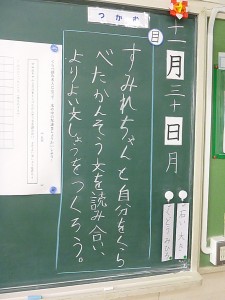 つかむ
十一月三十日月
目
すみれちゃんと自分をくら
べたかんそう文を読み合い、
よりよい文しょうをつくろう。